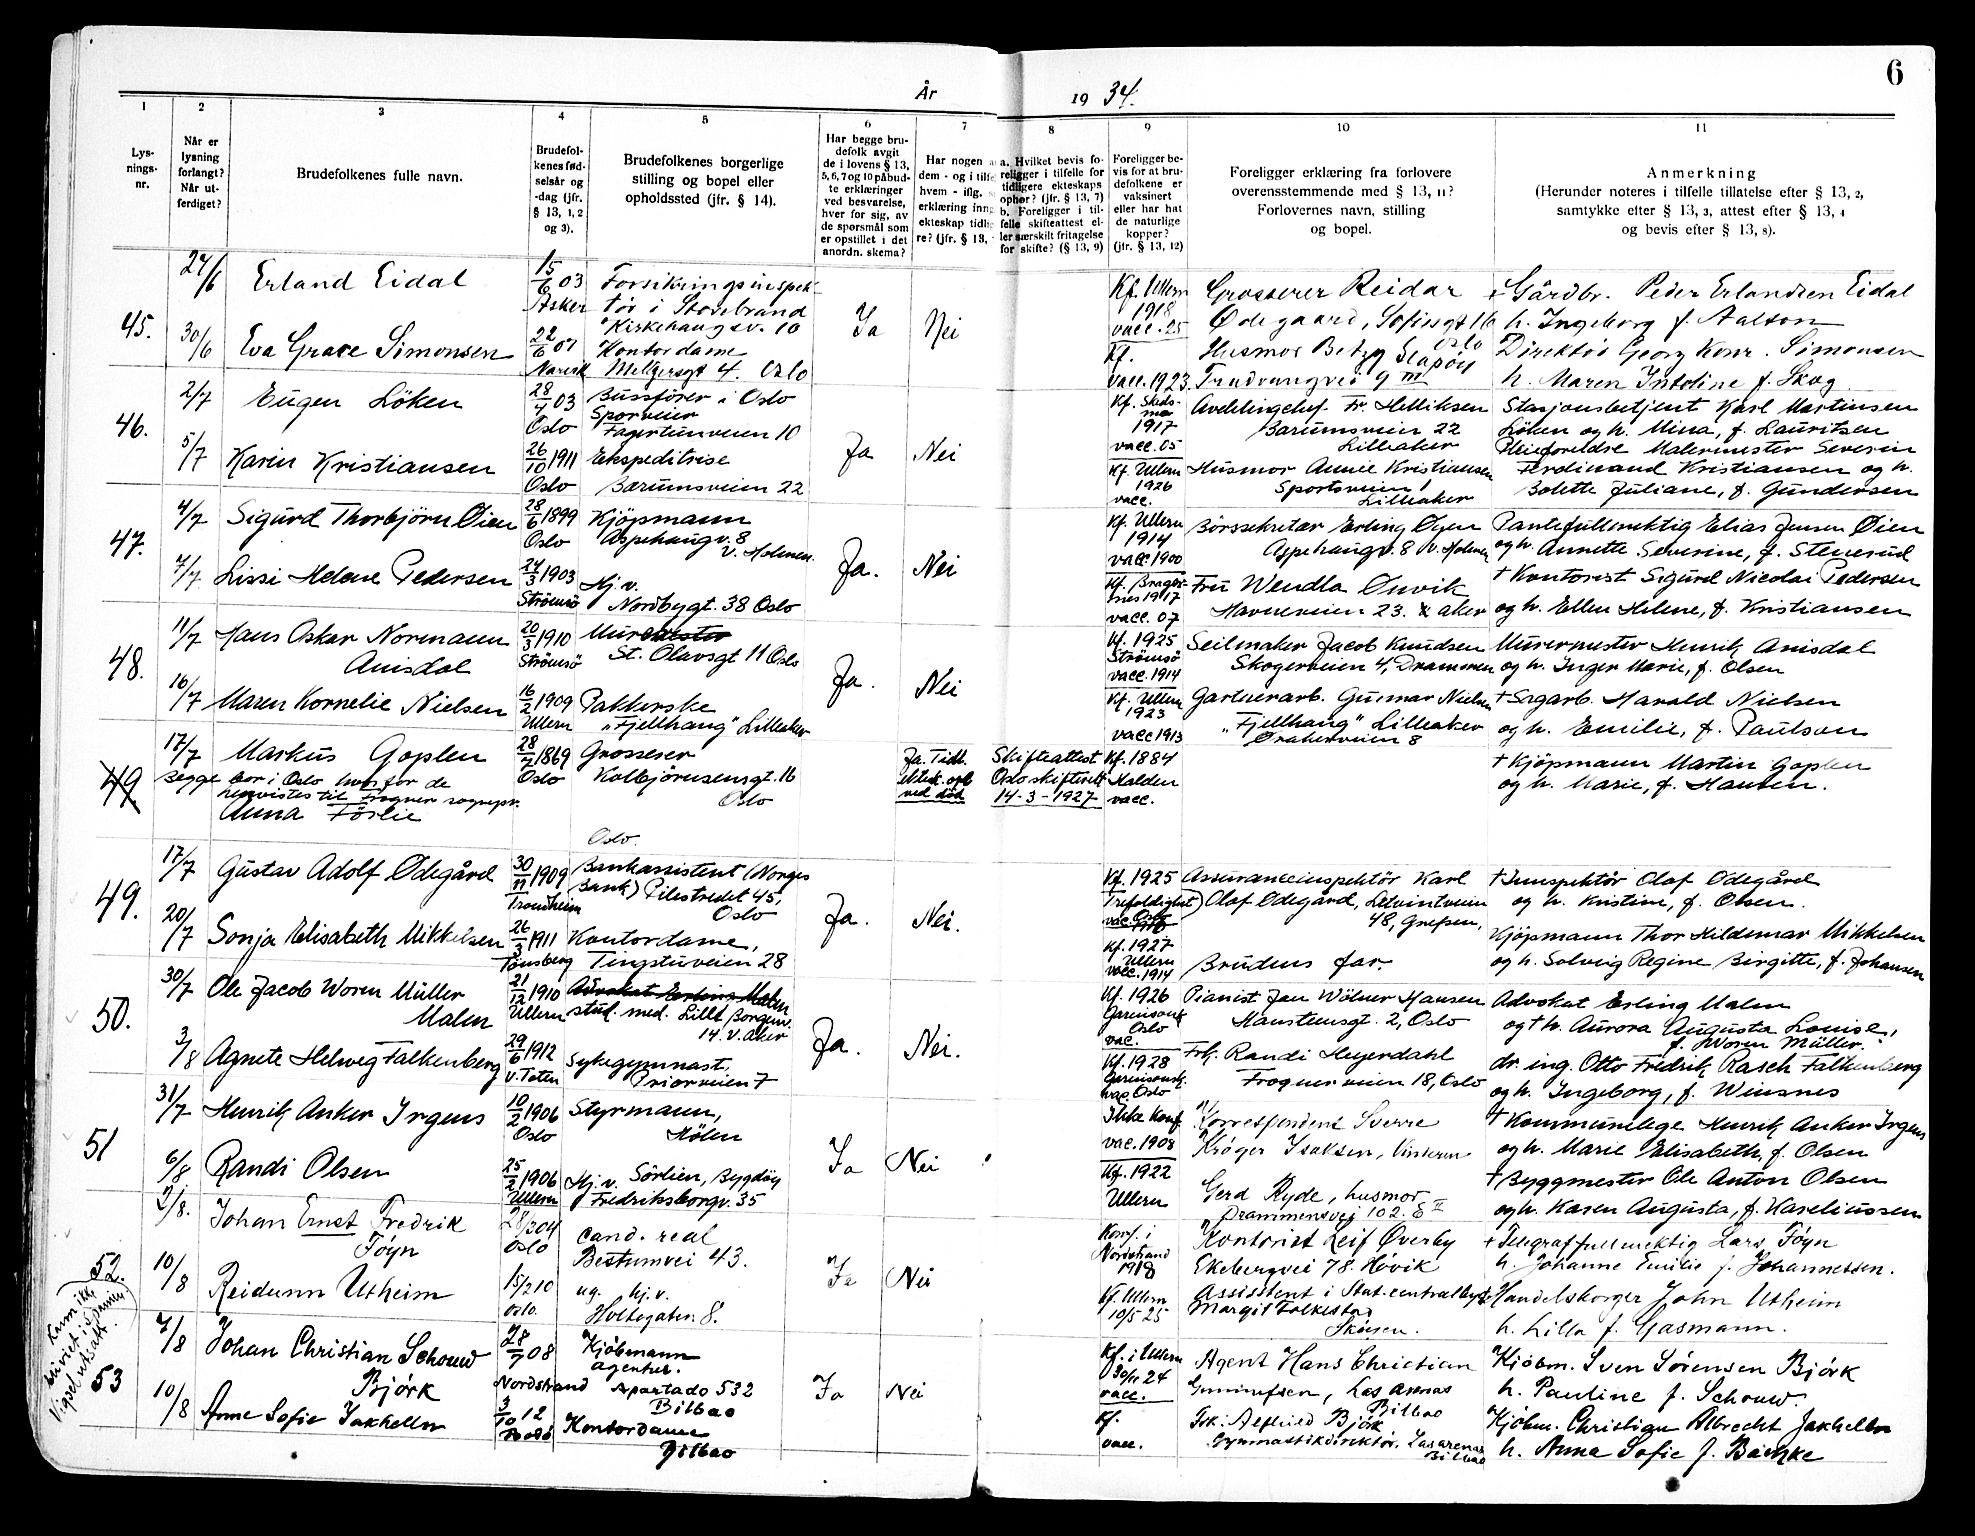 År 1934.
6
1
2
3
4
5
6
7
8
9
10
11
Lys-
nings-
nr.
Når er
lysning
forlangt?
Når ut-
ferdiget?
Brudefolkenes fulle navn.
Brudefol-
kenes fød-
selsår og
-dag (jfr.
§ 13, 1, 2
og 3).
Brudefolkenes borgerlige
stilling og bopel eller
opholdssted (jfr. § 14).
Har begge bru-
defolk avgit
de i lovens § 13,
5, 6, 7 og 10 påbud-
te erklæringer
ved besvarelse,
hver for sig, av
de spørsmål som
er opstillet i det
anordn. skema?
Har nogen a
dem - og i tilfe
hvem - iflg.
erklæring inng
ekteskap tidlig
re? (jfr. § 13,
a. Hvilket bevis fo-
religger i tilfelle for
tidligere ekteskaps
ophør? (jfr. § 13, 7)
b. Foreligger i til-
felle skifteattest el-
ler særskilt fritagelse
for skifte? (§ 13, 9)
Foreligger be-
vis for at bru-
defolkene er
vaksinert
eller har hat
de naturlige
kopper?
(jfr. § 13, 12)
Foreligger erklæring fra forlovere
overensstemmende med § 13, 11?
Forlovernes navn, stilling
og bopel.
Anmerkning
(Herunder noteres i tilfelle tillatelse efter § 13, 2,
samtykke efter § 13, 3, attest efter § 13, 4
og bevis efter § 13, 8).
45.
27/6
30/6
Erland Eidal
Eva Grace Simonsen
15/6 03
Asker
22/6 07
Forsikringsinspek-
tør i Storebrand
Kirkehaugsv. 10
Kontordame
Meltzersgt 4. Oslo
Ja
Nei
Kf. Ullern
1918
vacc. 25
Kf.
vacc. 1923.
Grosserer Reidar
Ødegaard, Sofiesgt 16
Oslo
Husmor Betzy
Trudvangvei 9 III
+ Gårdbr. Peder Erlandsen Eidal
h. Ingeborg f. Aalton
Direktør Georg Konr. Simonsen
h. Maren f. Skog
46.
2/7
5/7
Eugen Löken
Karin Kristiansen
28/4 03
Oslo
26/10 1911
Oslo
Bussfører i Oslo
Sporveier
Fagertunveien 10
Ekspeditrise
Bærumsveien 22
Ja
Nei
1917
vacc. 05
Kf. Ullern
1926
vacc.
Avdelingchef. Fr. Helliksen
Bærumsveien 22
Lilleaker
Husmor Annie Kristiansen
Sportsveien 1
Lilleaker
Stasjonsbetjent Karl Martinsen
Löken og h. Mina, f. Lauritsen
Pleieforeldre Malermester Severin
Ferdinand Kristiansen og h.
Bolette Juliane, f. Gundersen
47.
4/7
7/7
Sigurd Thorbjörn Øien
Lissi Helene Pedersen
28/6 1899
Oslo
24/3 1903
Strömsö
Kjöpmann
Aspehaugv. 8
V. Holmen.
Hj. v.
Nordbygt. 38 Oslo
Ja.
Nei
Kf. Ullern
1914
vacc 1900
Kf. Brager-
nes 1917
vacc. 07
Börssekretær Erling Øyen
Aspehaugv. 8 V. Holmen
Fru Wendla
Havneveien 23. V. aker
Pantefullmektig Elias Jensen Øien
og h. Annette Severine, f. Stenerud
+ Kontorist Sigurd Nicolai Pedersen
og h. Ellen Helene, f. Kristiansen
48.
11/7
16/7
Hans Oskar Normann
Amsdal
Maren Kornelie Nielsen
20/3 1910
Strömsö
16/2 1909
Ullern
Murmester
St. Olavsgt 11 Oslo
Pakkerske
„Fjellhaug" Lilleaker
Ja.
Nei
Kf. 1925
Strömsö
vacc. 1914
Kf. Ullern
1923
vacc 1913
Seilmaker Jacob Knudsen
Skogerveien 4, Drammen
Gartnerarb. Gunnar Nielsen
„Fjellhaug" Lilleaker
Ørakerveien 8
Murermester Henrik Amsdal
og h. Inger Marie, f. Olsen
+ Sagarb. Harald Nielsen
og h. Emilie, f. Paulson
49
17/7
Markus Goplen
Begge bor i Oslo hvorfor de
henvistes til Frogner sognepr.
Anna Förlie
28/7 1869
Oslo
Grosserer
Kolbjörnsensgt. 16
Oslo
Ja. Tidl.
ektesk. opl.
ved död
Skifteattest
Oslo skifterett
14-3-1927
Kf. 1884
Halden
vacc.
+ Kjöpmann Martin Goplen
og h. Marie, f. Hansen.
49.
17/7
20/7
Gustav Adolf Ødegård
Sonja Elisabeth Mikkelsen
30/11 1909
Trondheim
26/3 1911
Tönsberg
Oslo.
Bankassistent (Norges
Bank) Pilestredet 45,
Oslo
Kontordame,
Tingstuveien 28
Ja.
Nei.
Kf. 1925
Trefoldighet
Oslo
Kf. 1927
Ullern
vacc. 1914
Assuranceinspektör Karl
Olaf Ødegård,
48, Grefsen,
Brudens far.
+ Innspektör Olaf Ødegård
og h. Kristine, f. Olsen.
Kjöpmann Thor Hildemar Mikkelsen
og h. Solveig Regine Birgitte, f. Johansen
50.
30/7
3/8
Ole Jacob Woren Müller
Malm
Agnete Helweg Falkenberg
21/12 1910
Ullern
29/6 1912
V. Toten
Advokat Erling Malm
stud. med. Lille Borgenv.
14. V. Aker
Sykegymnast,
Priorveien 7
Ja.
Nei.
Kf. 1926
Garnisonsk
Oslo
vac.
Kf. 1928
Garnisonsk.
vac. Oslo
Pianist Jan Wölner Hansen
Hausteensgt. 2, Oslo
Frk. Randi Heyerdahl
Frognerveien 18, Oslo
Advokat Erling Malm
og + h. Aurora Augusta Louise,
f. Woren Müller.
dr. ing. Otto Fredrik Rasch Falkenberg
og h. Ingeborg, f. Winsnes
51
31/7
6/8
Henrik Anker Irgens
Randi Olsen
10/2 1906
Oslo
25/2 1906
Ullern
Styrmann,
Hölen
Hj. v. Sörlien, Bygdöy
Fredriksborgv. 35
Ja
Nei
Ikke konf
vac. 1908
Kf. 1922
Ullern
Korrespondent Sverre
Kröger Isaksen, Vinderen
Gerd Ryde, husmor
Drammensvei 102. E II
+ Kommunelege Henrik Anker Irgens
og h. Marie Elisabeth, f. Olsen
+ Byggmester Ole Anton Olsen
og h. Karen Augusta, f. Kareliussen
52.
2/8.
10/8
Johan Ernst Fredrik
Töyn
Reidunn Utheim
28/3 04
Oslo
15/2 10
Oslo.
cand. real
Bestumvei 43.
ug. hj.v.
Holtegaten 8.
Ja
Nei
Konf. i
Nordstrand
1918
Kf. Ullern
10/5 25
Kontorist Leif Øverby
Ekebergvei 78. Høvik
Assistent i Stat. centralbyrå
Margit Folkestad
Skøyen.
+ Telegraffullmektig Lars Töyn
h. Johanne Emilie f. Johannessen.
Handelsborger John Utheim
h. Lilla f. Gasmann.
Kan ikke
bli viet i Spanien.
Vigsel utsatt.
53
7/8
10/8
Johan Christian Schouw
Bjórk
Anne Sofie Jakhelln
28/7 08
Nordstrand
3/10 12
Bodö
Kjöbmann
agentur.
Apartado 532
Bilbao
Kontordame
Bilbao
Ja
Nei
Kf. i Ullern
30/11 24
vacc.
Kf.
vacc.
Agent Hans Christian
Gunnufsen, Las Arenas
Bilbao
Frk. Alfhild Bjórk
Gymnastikdirektör. Las arenas
Bilbao
Kjöbm. Sven Sórensen Bjórk
h. Pauline f. Schouw.
Kjöbm. Christian Albrecht Jakhelln
h. Anna Sofie f. Bachke